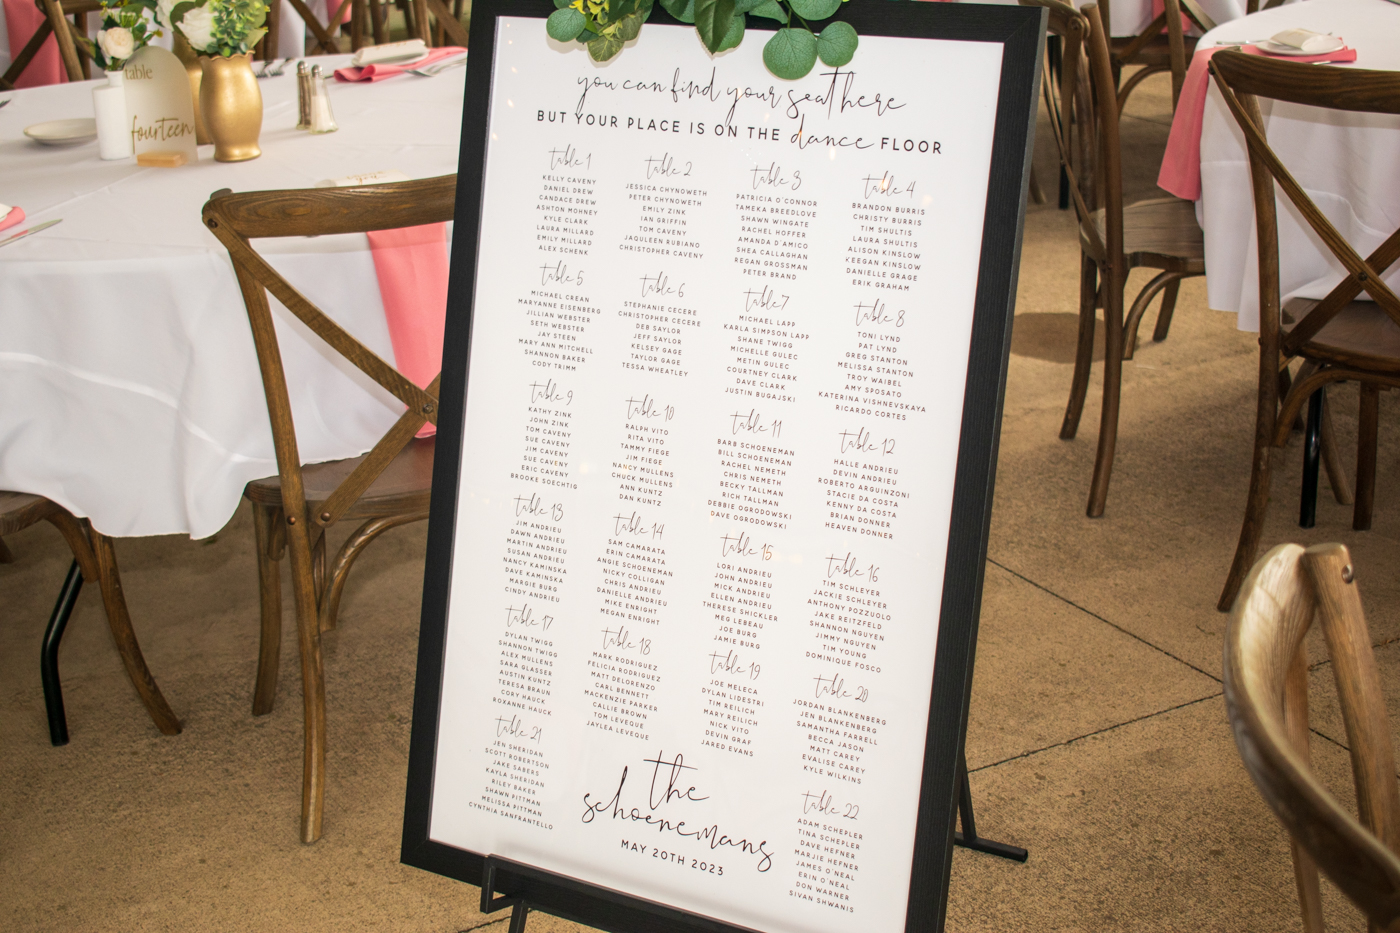 table
fourteen
you can find your seat here
BUT YOUR PLACE IS ON THE dance FLOOR
table 1
KELLY CAVENY
DANIEL DREW
CANDACE DREW
ASHTON MOHNEY
KYLE CLARK
LAURA MILLARD
EMILY MILLARD
ALEX SCHENK
table 2
JESSICA CHYNOWETH
PETER CHYNOWETH
EMILY ZINK
IAN GRIFFIN
TOM CAVENY
JAQULEEN RUBIANO
CHRISTOPHER CAVENY
table 3
PATRICIA O'CONNOR
TAMEKA BREEDLOVE
SHAWN WINGATE
RACHEL HOFFER
AMANDA D'AMICO
SHEA CALLAGHAN
REGAN GROSSMAN
PETER BRAND
table 4
BRANDON BURRIS
CHRISTY BURRIS
TIM SHULTIS
LAURA SHULTIS
ALISON KINSLOW
KEEGAN KINSLOW
DANIELLE GRAGE
ERIK GRAHAM
table 5
MICHAEL CREAN
MARYANNE EISENBERG
JILLIAN WEBSTER
SETH WEBSTER
JAY STEEN
MARY ANN MITCHELL
SHANNON BAKER
CODY TRIMM
table 6
STEPHANIE CECERE
CHRISTOPHER CECERE
DEB SAYLOR
JEFF SAYLOR
KELSEY GAGE
TAYLOR GAGE
TESSA WHEATLEY
table 7
MICHAEL LAPP
KARLA SIMPSON LAPP
SHANE TWIGG
MICHELLE GULEC
METIN GULEC
COURTNEY CLARK
DAVE CLARK
JUSTIN BUGAJSKI
table 8
TONI LYND
PAT LYND
GREG STANTON
MELISSA STANTON
TROY WAIBEL
AMY SPOSATO
KATERINA VISHNEVSKAYA
RICARDO CORTES
table 9
KATHY ZINK
JOHN ZINK
TOM CAVENY
SUE CAVENY
JIM CAVENY
SUE CAVENY
ERIC CAVENY
BROOKE SOECHTIG
table 10
RALPH VITO
RITA VITO
TAMMY FIEGE
JIM FIEGE
NANCY MULLENS
CHUCK MULLENS
ANN KUNTZ
DAN KUNTZ
table 11
BARB SCHOENEMAN
BILL SCHOENEMAN
RACHEL NEMETH
CHRIS NEMETH
BECKY TALLMAN
RICH TALLMAN
DEBBIE OGRODOWSKI
DAVE OGRODOWSKI
table 12
HALLE ANDRIEU
DEVIN ANDRIEU
ROBERTO ARGUINZONI
STACIE DA COSTA
KENNY DA COSTA
BRIAN DONNER
HEAVEN DONNER
table 13
JIM ANDRIEU
DAWN ANDRIEU
MARTIN ANDRIEU
SUSAN ANDRIEU
NANCY KAMINSKA
DAVE KAMINSKA
MARGIE BURG
CINDY ANDRIEU
table 14
SAM CAMARATA
ERIN CAMARATA
ANGIE SCHOENEMAN
NICKY COLLIGAN
CHRIS ANDRIEU
DANIELLE ANDRIEU
MIKE ENRIGHT
MEGAN ENRIGHT
table 15
LORI ANDRIEU
JOHN ANDRIEU
MICK ANDRIEU
ELLEN ANDRIEU
THERESE SHICKLER
MEG LEBEAU
JOE BURG
JAMIE BURG
table 16
TIM SCHLEYER
JACKIE SCHLEYER
ANTHONY POZZUOLO
JAKE REITZFELD
SHANNON NGUYEN
JIMMY NGUYEN
TIM YOUNG
DOMINIQUE FOSCO
table 17
DYLAN TWIGG
SHANNON TWIGG
ALEX MULLENS
SARA GLASSER
AUSTIN KUNTZ
TERESA BRAUN
CORY HAUCK
ROXANNE HAUCK
table 18
MARK RODRIGUEZ
FELICIA RODRIGUEZ
MATT DELORENZO
CARL BENNETT
MACKENZIE PARKER
CALLIE BROWN
TOM LEVEQUE
JAYLEA LEVEQUE
table 19
JOE MELECA
DYLAN LIDESTRI
TIM REILICH
MARY REILICH
NICK VITO
DEVIN GRAF
JARED EVANS
table 20
JORDAN BLANKENBERG
JEN BLANKENBERG
SAMANTHA FARRELL
BECCA JASON
MATT CAREY
EVALISE CAREY
KYLE WILKINS
table 21
JEN SHERIDAN
SCOTT ROBERTSON
JAKE SABERS
KAYLA SHERIDAN
RILEY BAKER
SHAWN PITTMAN
MELISSA PITTMAN
CYNTHIA SANFRANTELLO
the
schoenemans
MAY 20TH 2023
table 22
ADAM SCHEPLER
TINA SCHEPLER
DAVE HEFNER
MARJIE HEFNER
JAMES O'NEAL
ERIN O'NEAL
DON WARNER
SIVAN SHWANIS